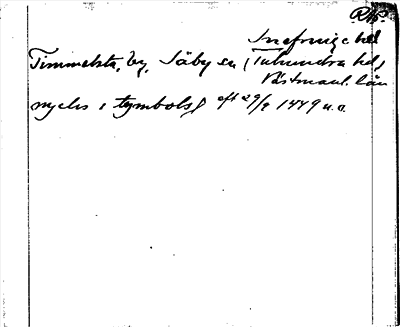 RAp.
Snefringe hd
Timmelsta, by, Säby sn, Tuhundra hd,
Västmanl. län
nychs i tymbolsſ eft 29/9 1449 u.a.